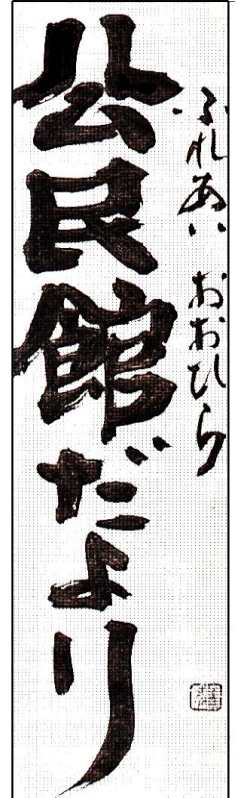 ふれあい おおひら
公民館だより